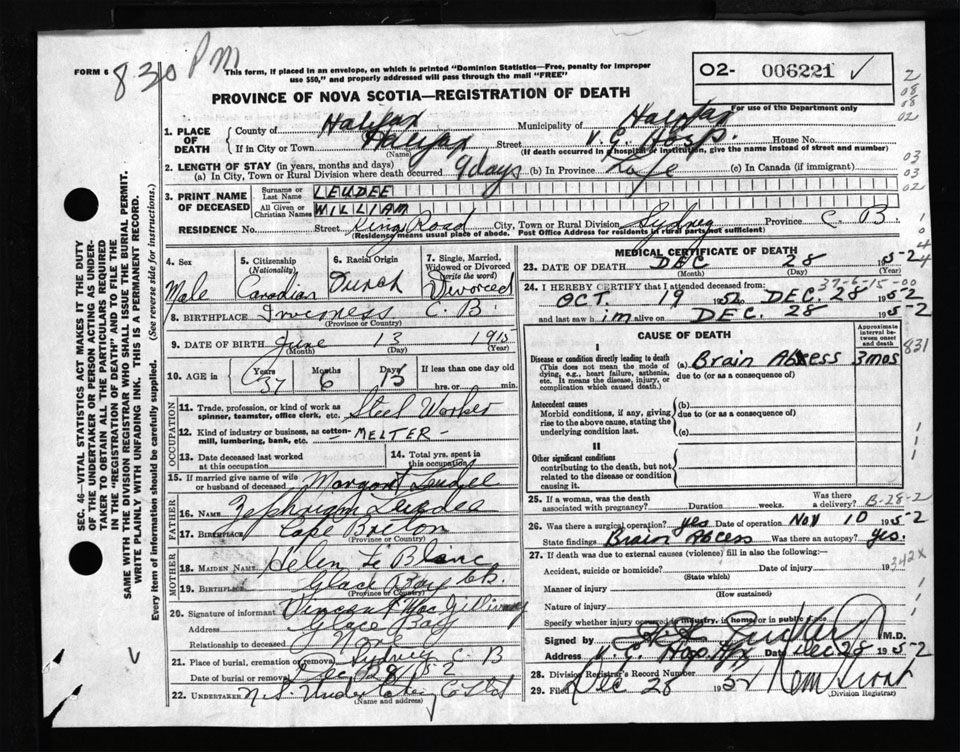 FORM 6
8 30 PM
This form, if placed in an envelope, on which is printed "Dominion Statistics—Free, penalty for improper
use $50," and properly addressed will pass through the mail "FREE"
02- 006221 ✓
For use of the Department only
PROVINCE OF NOVA SCOTIA—REGISTRATION OF DEATH
2
08
08
02
03
03
02
1. PLACE OF DEATH
County of Halifax Municipality of Halifax
If in City or Town Halifax Street V. G. Hosp. House No.
(Name) (If death occurred in hospital or institution, give the name instead of street and number)
2. LENGTH OF STAY (in years, months and days)
(a) In City, Town or Rural Division where death occurred 9 days (b) In Province Life (c) In Canada (if immigrant)
3. PRINT NAME OF DECEASED
Surname or Last Name LEUDEE
All Given or Christian Names WILLIAM
RESIDENCE No. Street Kings Road City, Town or Rural Division Sydney Province C. B.
(Residence means usual place of abode. Post Office Address for residents in rural parts not sufficient)
4. Sex Male
5. Citizenship (Nationality) Canadian
6. Racial Origin
7. Single, Married, Widowed or Divorced (write the word) Divorced
8. BIRTHPLACE Inverness C. B.
(Province or Country)
9. DATE OF BIRTH June 13 1915
(Month) (Day) (Year)
10. AGE in Years 37 Months 6 Days 15 If less than one day old
hrs. or min.
OCCUPATION
11. Trade, profession, or kind of work as
spinner, teamster, office clerk, etc. Steel Worker
12. Kind of industry or business, as cotton-
mill, lumbering, bank, etc. - MELTER -
13. Date deceased last worked
at this occupation
14. Total yrs. spent in
this occupation
15. If married give name of wife
or husband of deceased Margaret Leudee
FATHER
16. NAME Zephriam Leudee
17. BIRTHPLACE Cape Breton
(Province or Country)
MOTHER
18. MAIDEN NAME Helen Le Blanc
19. BIRTHPLACE Glace Bay C.B.
(Province or Country)
20. Signature of informant Vincent J MacGillivray
Address Glace Bay
Relationship to deceased None
21. Place of burial, cremation or removal Sydney C. B
Date of burial or removal Dec 28/52
22. UNDERTAKER N.S. Undertaking Co Ltd
(Name and address)
MEDICAL CERTIFICATE OF DEATH
23. DATE OF DEATH DEC 28 1952
(Month) (Day) (Year)
24. I HEREBY CERTIFY that I attended deceased from:
37-6-15-00
OCT. 19 1952 to DEC. 28 1952
and last saw him alive on DEC. 28 1952
CAUSE OF DEATH
Approximate interval between onset and death
831
I
Disease or condition directly leading to death
(This does not mean the mode of dying, e.g., heart failure, asthenia, etc. It means the disease, injury, or complication which caused death.)
(a) Brain Abscess 3 mos
due to (or as a consequence of)
Antecedent causes
Morbid conditions, if any, giving rise to the above cause, stating the underlying condition last.
(b)
due to (or as a consequence of)
(c)
II
Other significant conditions
contributing to the death, but not related to the disease or condition causing it.
25. If a woman, was the death
associated with pregnancy? Duration weeks. Was there a delivery? B-28-2
26. Was there a surgical operation? yes Date of operation Nov 10 1952
State findings Brain Abcess Was there an autopsy? yes.
27. If death was due to external causes (violence) fill in also the following:—
342x
Accident, suicide or homicide? Date of injury 19
(State which)
Manner of injury
(How sustained)
Nature of injury
Specify whether injury occurred in industry, in home, or in public place
Signed by M.D.
Address V. G. Hosp. Hfx Date Dec 28 1952
28. Division Registrar's Record Number
29. Filed Dec 28 1952
(Division Registrar)
SEC. 46—VITAL STATISTICS ACT MAKES IT THE DUTY
OF THE UNDERTAKER OR PERSON ACTING AS UNDER-
TAKER TO OBTAIN ALL THE PARTICULARS REQUIRED
IN THE "REGISTRATION OF DEATH" AND TO FILE THE
SAME WITH THE DIVISION REGISTRAR WHO SHALL ISSUE THE BURIAL PERMIT.
WRITE PLAINLY WITH UNFADING INK. THIS IS A PERMANENT RECORD.
Every item of information should be carefully supplied. (See reverse side for instructions.)